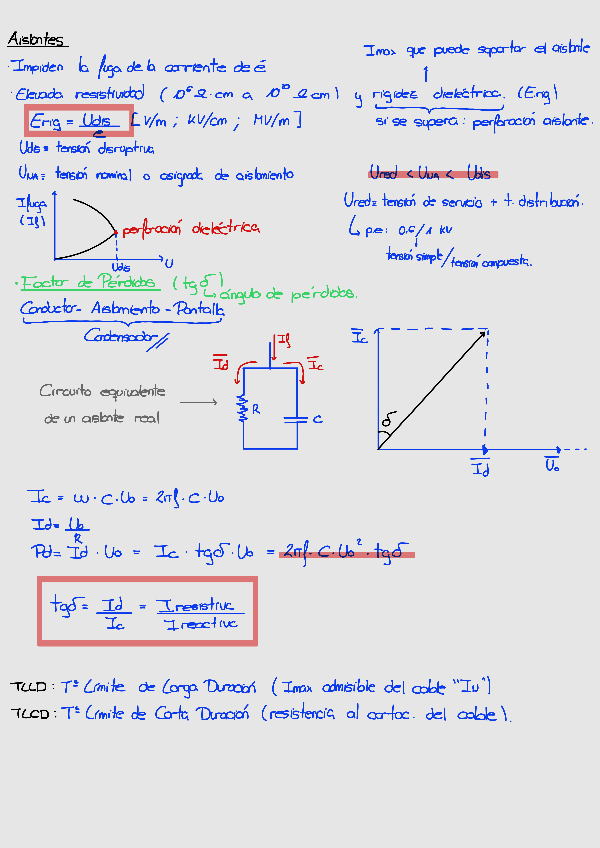 Aislantes
· Impiden la fuga de la corriente de é
Imax que puede soportar el aislante
· Elevada resistividad (10⁶ Ω·cm a 10²⁰ Ω cm) y rigidez dieléctrica. (Erig)
si se supera: perforación aislante.
Erig = Udis / e [V/m ; KV/cm ; MV/m]
Udis = tensión disruptiva
UNA = tensión nominal o asignada de aislamiento
Ured < UNA < Udis
Ured = tensión de servicio + t. distribución.
p.e: 0,6/1 kV
tensión simple/tensión compuesta.
Ifuga
(If)
perforación dieléctrica
Udis
U
· Factor de Pérdidas (tgδ)
ángulo de pérdidas.
Conductor - Aislamiento - Pantalla
Condensador
If
Id
Ic
R
C
Circuito equivalente
de un aislante real
Ic
δ
Id
Uo
Ic = ω · C · Uo = 2πf · C · Uo
Id = Uo / R
Pd = Id · Uo = Ic · tgδ · Uo = 2πf · C · Uo² · tgδ
tgδ = Id / Ic = I resistiva / I reactiva
TLLD : Tª Límite de Larga Duración (Imax admisible del cable "Iu")
TLCD : Tª Límite de Corta Duración (resistencia al cortoc. del cable).